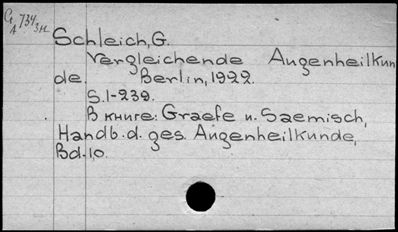 Schleich, G.
Vergleichende Augenheilkun
de. Berlin, 1922.
S. 1-239.
В книге: Graefe u. Saemisch,
Handb. d. ges. Augenheilkunde,
Bd. 10.